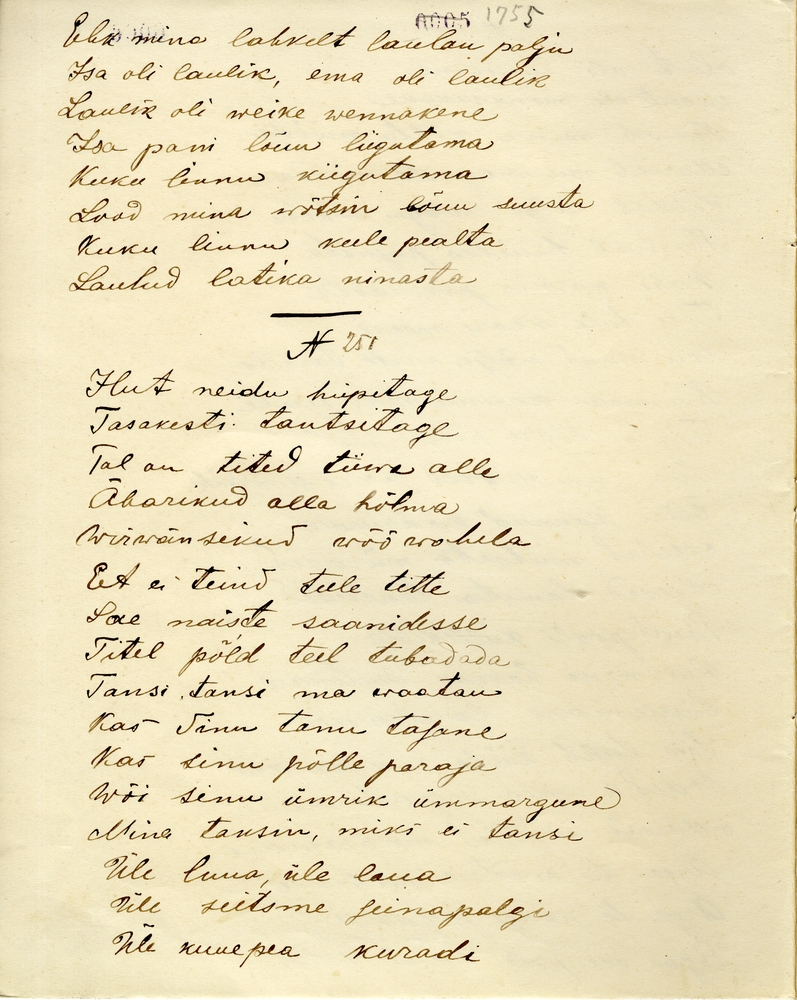 0005 1755
Ehk mina lahkelt laulan palju
Isa oli laulik, ema oli laulik
Laulik oli weike wennakene
Isa pani lõuu liigutama
Kuku linnu kiigutama
Lood mina wõtsin lõuu suusta
Kuku linnu keele pealta
Laulud latika ninasta
N 251
Hut neidu hüpitage
Tasakesti tantsitage
Tal on tited tiiwa alla
Äbarikud alla hõlma
Wirwänsekud wöö wahela
Et ei teind teele titte
Sae naiste saanidesse
Titel põld teel tubadada
Tansi, tansi ma waatan
Kas Sinu tanu tasane
Kas sinu põlle paraja
Wõi sinu ümrik ümmargune
Mina tansin, miks ei tansi
Üle luua, üle laua
Üle seitsme seinapalgi
Üle kuuepea kuradi